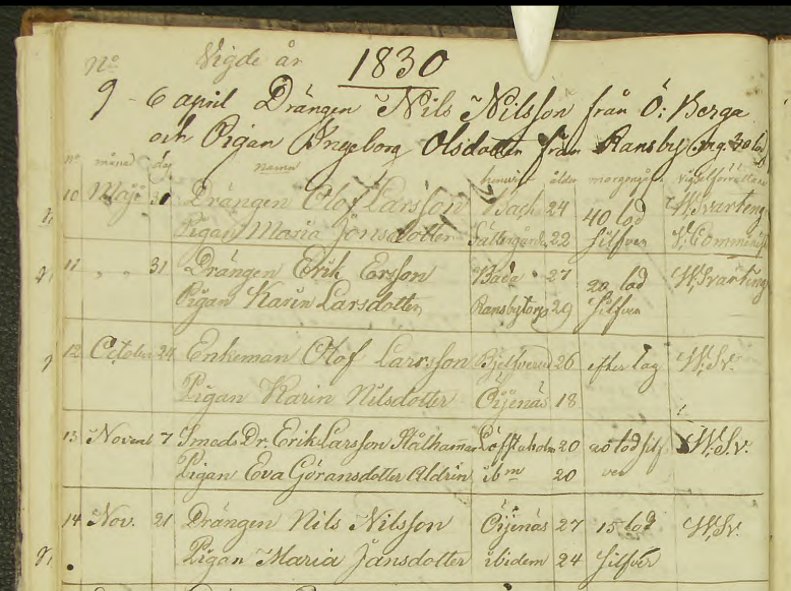 No Vigde år 1830
9 - 6 april Drängen Nils Nilsson från Ö: Berga
och Pigan Ingeborg Olsdotter från Ransby mg. 30 lod
no månad dag namn hemvist ålder morgongåfva
10 Maji 30 Drängen Olof Larsson Backa 24 40 lod W. Svarteng
Pigan Maria Jonsdotter 22 Silfver V. Comminist
11 " " 31 Drängen Erik Ersson Bada 27 20 lod W. Svarteng
Pigan Karin Larsdotter Ransbytorp 29 Silfver
12 October 24 Enkeman Olof Larsson 26 efter lag W. Sv.
Pigan Karin Nilsdotter Öijenäs 18
13 Novemb 7 Smeds Dr. Erik Larsson Stålhammar Löfstaholm 20 20 lod silf W. S.v.
Pigan Eva Göransdotter Aldrin ibm 20 ver
14 Nov. 21 Drängen Nils Nilsson Öijenäs 27 15 lod W. Sv.
Pigan Maria Jansdotter ibidem 24 Silfver